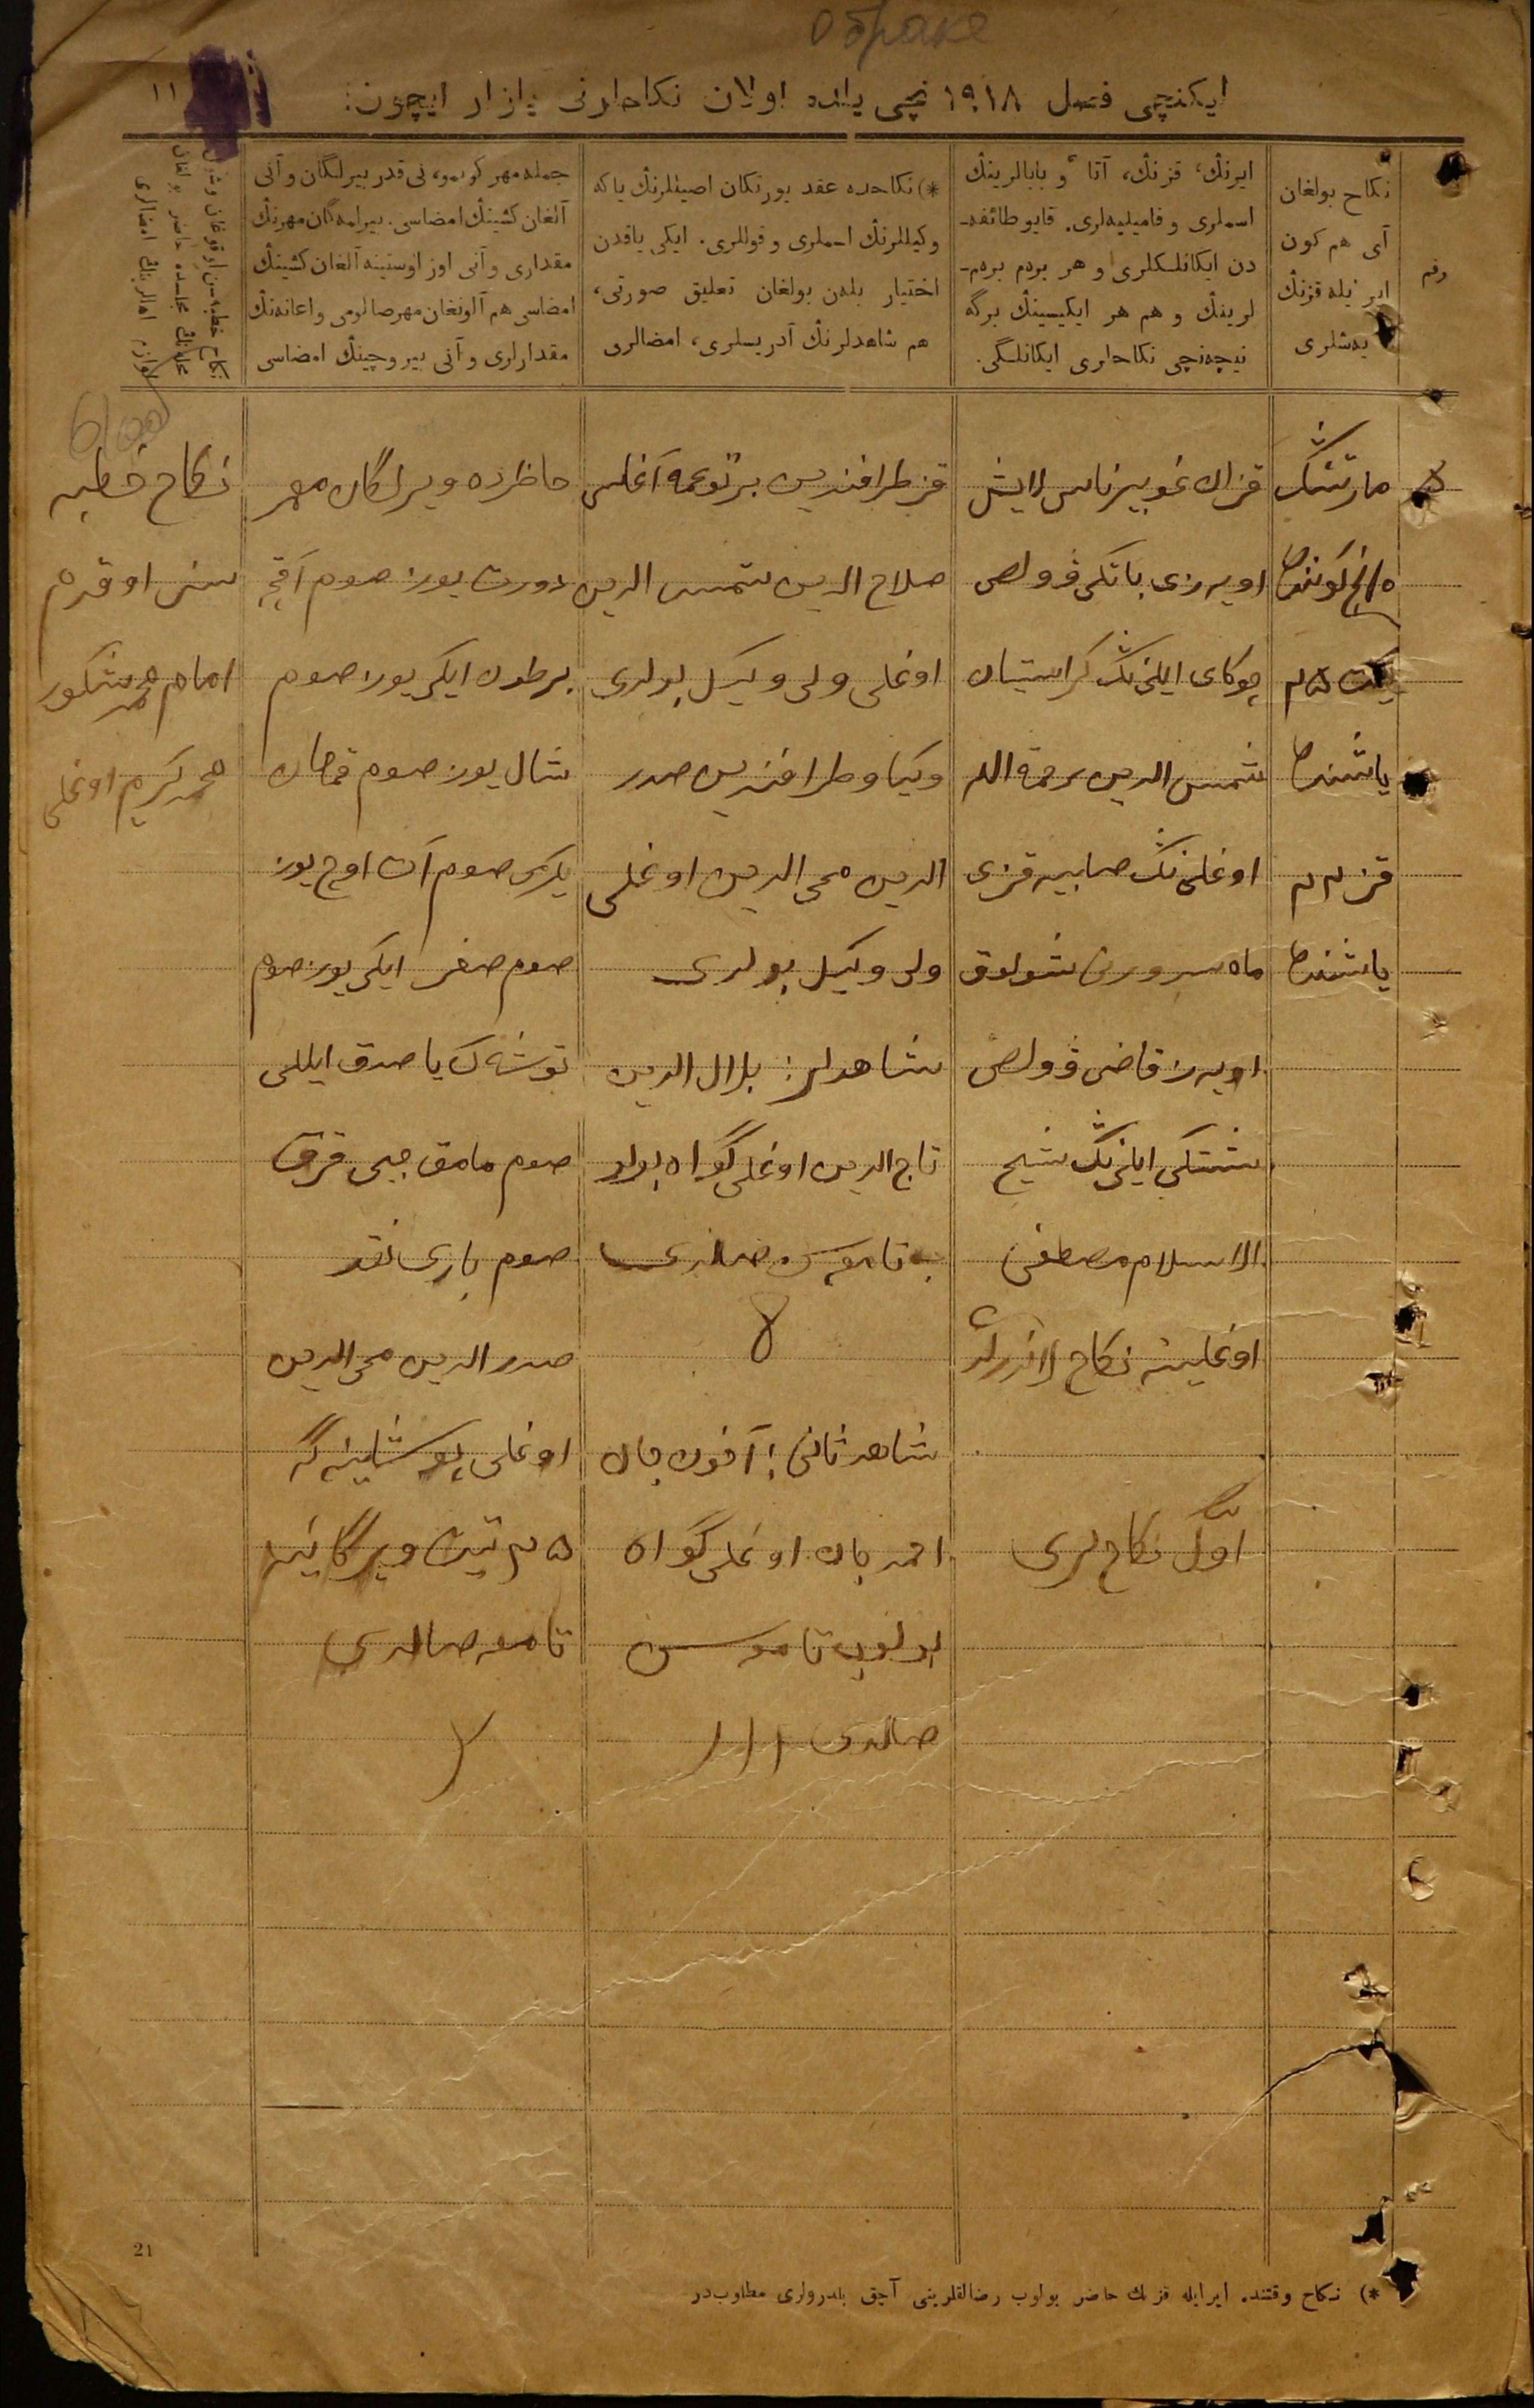 обраке
ایکنچی فصل ١٩١٨ نچی یلده اولان نکاحلرنی یازار ایچون:
١١
رقم
نکاح بولغان
آی هم کون
ایر ایله قزنڭ
یەشلری
ایرنڭ، قزنڭ، آتا و بابالرینڭ
اسملری و فامیلیەلری. قایو طائفه‌ـ
دن ایکانلکلری و هر بردم بردم‌ـ
لرینڭ و هم هر ایکیسینڭ برگه
نیچەنچی نکاحلری ایکانلگی.
*) نکاحده عقد یورتکان اصیللرنڭ یا که
وکیللرنڭ اسملری و قوللری. ایکی یاقدن
اختیار بلەن بولغان تعلیق صورتی،
هم شاهدلرنڭ آدریسلری، امضالری
جمله مهر کوبمو، نی قدر بیرلگان و آنی
آلغان کشینڭ امضاسی. بیرلمەگان مهرنڭ
مقداری و آنی اوز اوستینه آلغان کشینڭ
امضاسی هم آلونغان مهر صالومی و اعانەنڭ
مقدارلری و آنی بیروچینڭ امضاسی
نکاح خطبەسن اوقوغان و شول
مجلسنڭ مجلسده حاضر بولغان
لوازم امالرینڭ امضالری
مارتنڭ
کوننده
یکت ٢٥
یاشنده
قز ٢٢
یاشنده
قزان غوبیرناسی لایش
اویەزی باتکی ڤولص
چوکای ایلی‌نڭ کراستیان
شمس الدین رحمة الله
اوغلی‌نڭ صابیه قزی
ماه سرورنی شولوق
اویەز قاضی ڤولص
شتکی ایلی‌نڭ شیخ
الاسلام مصطفی
اوغلینه نکاح لاندرلدی
اوّل نکاح‌لری
قز طرافندین برتوغمه آغاسی
صلاح الدین شمس الدین
اوغلی ولی وکیل بولدی
وکیاو طرافندین صدر
الدین محی الدین اوغلی
ولی وکیل بولدی
شاهدلر: بلال الدین
تاج الدین اوغلی گواه بولوب
تامغاسن صالدی
شاهد ثانی: آخون جان
احمد جان اوغلی گواه
بولوب تامغاسن
صالدی
حاظرده ویرلگان مهر
دورت یوز صوم آقچه
بر طون ایکی یوز صوم
شال یوز صوم قماچان
یگرمی صوم آت اوچ یوز
صوم صغر ایکی یوز صوم
توشەک یاصدق ایللی
صوم مامق جبی قرق
صوم باری نقد
صدر الدین محی الدین
اوغلی پوشلینه گه
٢٥ تین ویرگاینه
تامغا صالدی
نکاح خطبه
سن اوقودم
امام محمد شکور
محمد کریم اوغلی
21
*) نکاح وقتنده ایر ایله قزنڭ حاضر بولوب رضالقلرینی آچق بلدرولری مطلوب‌در